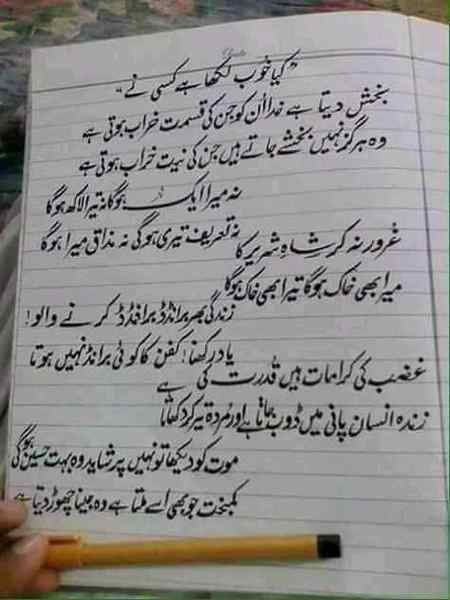 "کیا خوب لکھا ہے کسی نے"
بخش دیتا ہے خدا اُن کو جن کی قسمت خراب ہوتی ہے
وہ ہرگز نہیں بخشے جاتے ہیں جن کی نیت خراب ہوتی ہے
نہ میرا ایک ہوگا نہ تیرا لاکھ ہوگا
نہ تعریف تیری ہوگی نہ مذاق میرا ہوگا
غرور نہ کر شاہِ شریر کا
میرا بھی خاک ہوگا تیرا بھی خاک ہوگا
زندگی بھر برانڈڈ برانڈڈ کرنے والو!
یاد رکھنا! کفن کا کوئی برانڈ نہیں ہوتا
غضب کی کرامات ہیں قدرت کی ہے
زندہ انسان پانی میں ڈوب جاتا ہے اور مُردہ تیر کر دکھاتا
موت کو دیکھا تو نہیں پر شاید وہ بہت حسین ہوگی
کمبخت جو بھی اسے ملتا ہے وہ جینا چھوڑ دیتا ہے